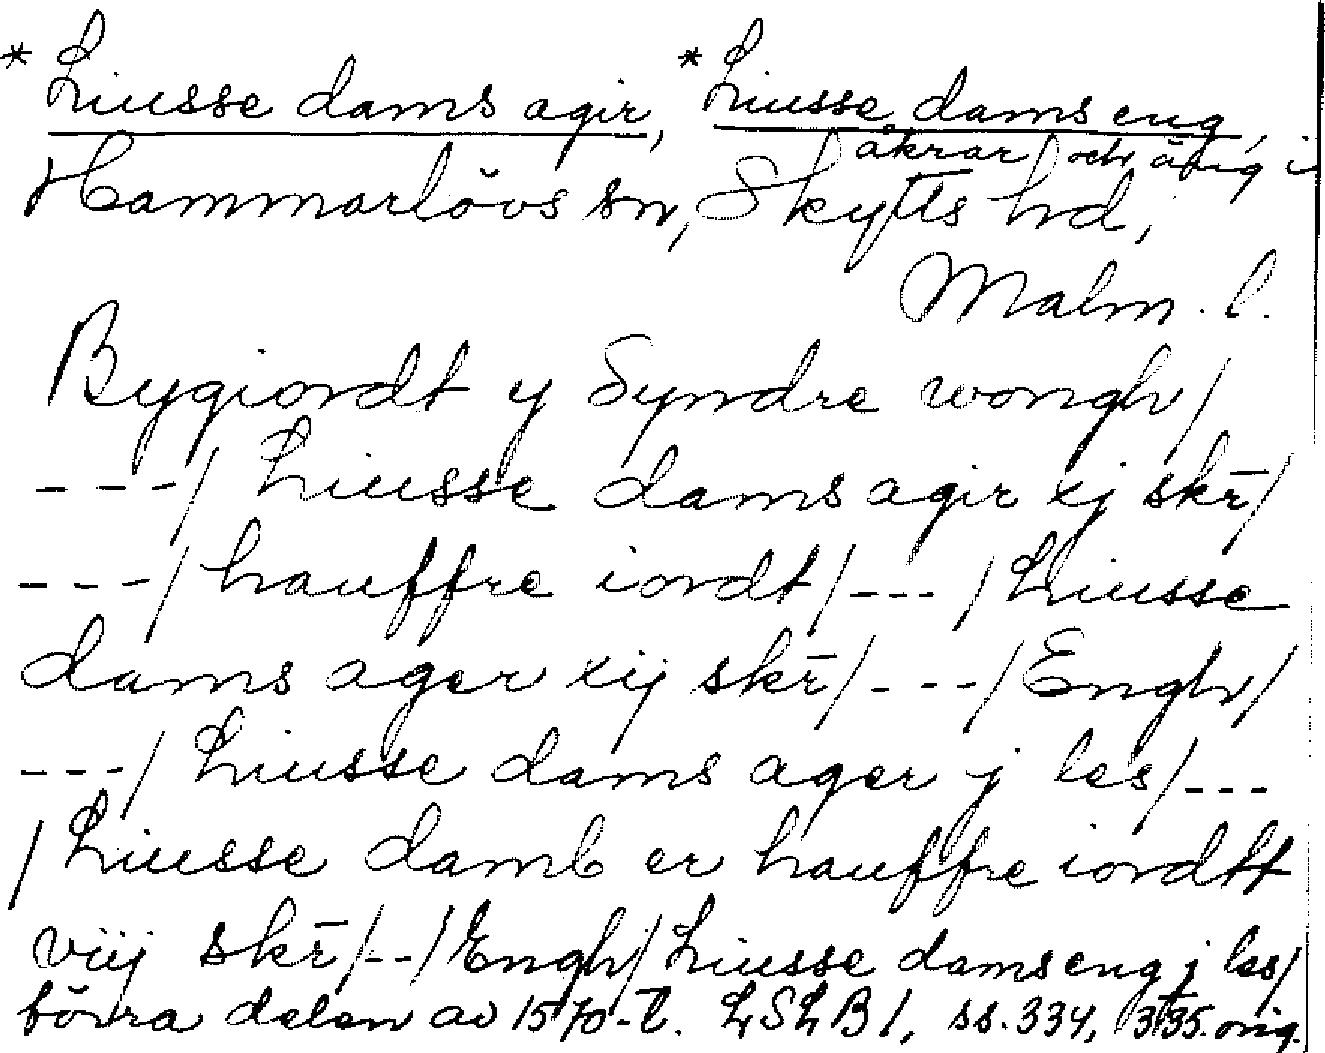 * Liusse dams agir, * Liusse dams eng,
åkrar och äng i
Hammarlövs sn, Skytts hd,
Malm. l.
Bygiordt y Syndre wongh/
---/ Liusse dams agir xj skr̄/
---/ hauffre iordt/---/Liusse
dams ager xij skr̄/---/Engh/
---/ Liusse dams ager j les/---
/Liusse damb er hauffre iordtt
viij skr̄/--/Engh/Liusse dams eng j les/
förra delen av 1570-t. LSLB 1, ss. 334, 335. orig.